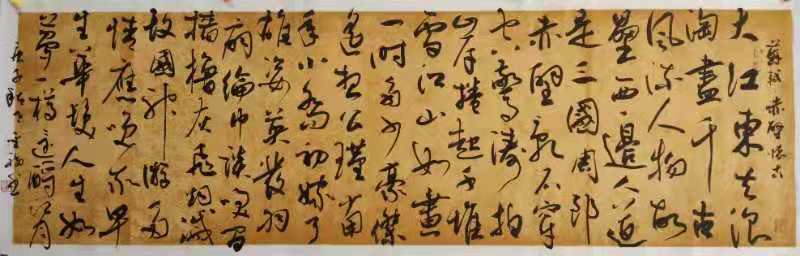 蘇軾 赤壁懷古
大江東去浪
淘盡千古
風流人物故
壘西邊人道
是三國周郎
赤壁亂石穿
空驚濤拍
岸捲起千堆
雪江山如畫
一時多少豪傑
遙想公瑾當
年小喬初嫁了
雄姿英發羽
扇綸巾談笑間
檣櫓灰飛煙滅
故國神游多
情應笑我早
生華髮人生如
夢一樽還酹江月
庚子秋